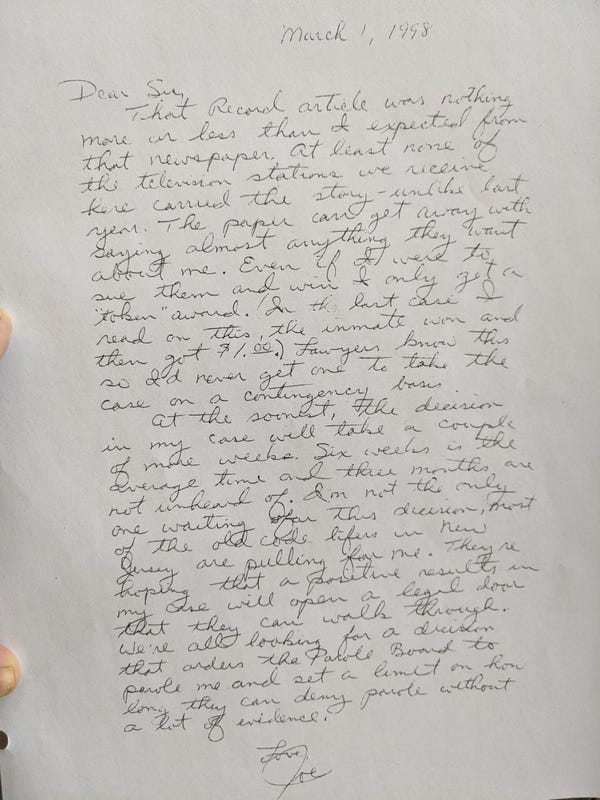 March 1, 1998
Dear Sue,
That Record article was nothing
more or less than I expected from
that newspaper. At least none of
the television stations we receive
here carried the story - unlike last
year. The paper can get away with
saying almost anything they want
about me. Even if I were to
sue them and win I only get a
"token" award. (In the last case I
read on this, the inmate won and
then got $1.00.) Lawyers know this
so I'd never get one to take the
case on a contingency basis.
At the soonest, the decision
in my case will take a couple
of more weeks. Six weeks is the
average time and three months are
not unheard of. I'm not the only
one waiting for this decision, most
of the old code lifers in New
Jersey are pulling for me. They're
hoping that a positive results in
my case will open a legal door
that they can walk through.
We're all looking for a decision
that orders the Parole Board to
parole me and set a limit on how
long they can deny parole without
a lot of evidence.
Love
Joe